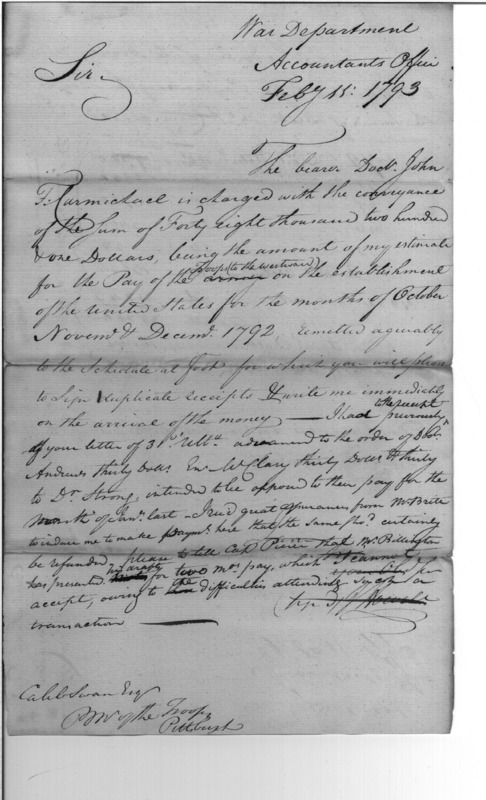 War Department
Accountants Office
Feby 11: 1793
Sir.
The bearer Doctr. John
F. Carmichael is charged with the conveyance
of the Sum of Forty eight thousand two hundred
& one Dollars, being the amount of my estimate
for the Pay of the troops (to the westward) on the establishment
of the United States for the months of October
Novemr. & Decemr. 1792, remitted agreeably
to the Schedule at foot for which you will please
to Sign duplicate receipts & write me immediately
on the arrival of the money — I had previously to the receipt
of your letter of 31st Ulto. advanced to the order of
Andrews thirty Dolls. En. McClary thirty Dolls. & thirty
to Dr. Strong, intended to be opposed to their pay for the
Month of Jany. last great assurances from Mr. Brite
to induce me to make paymt. here that the same shod. certainly
be refunded please to tell Capt. that Mr. Billington
has presented a draft for two mos. pay, which
accept, owing to the difficulties attending such a
transaction —
J Howell
Caleb Swan Esqr
P Mr of the Troops
Pittburgh